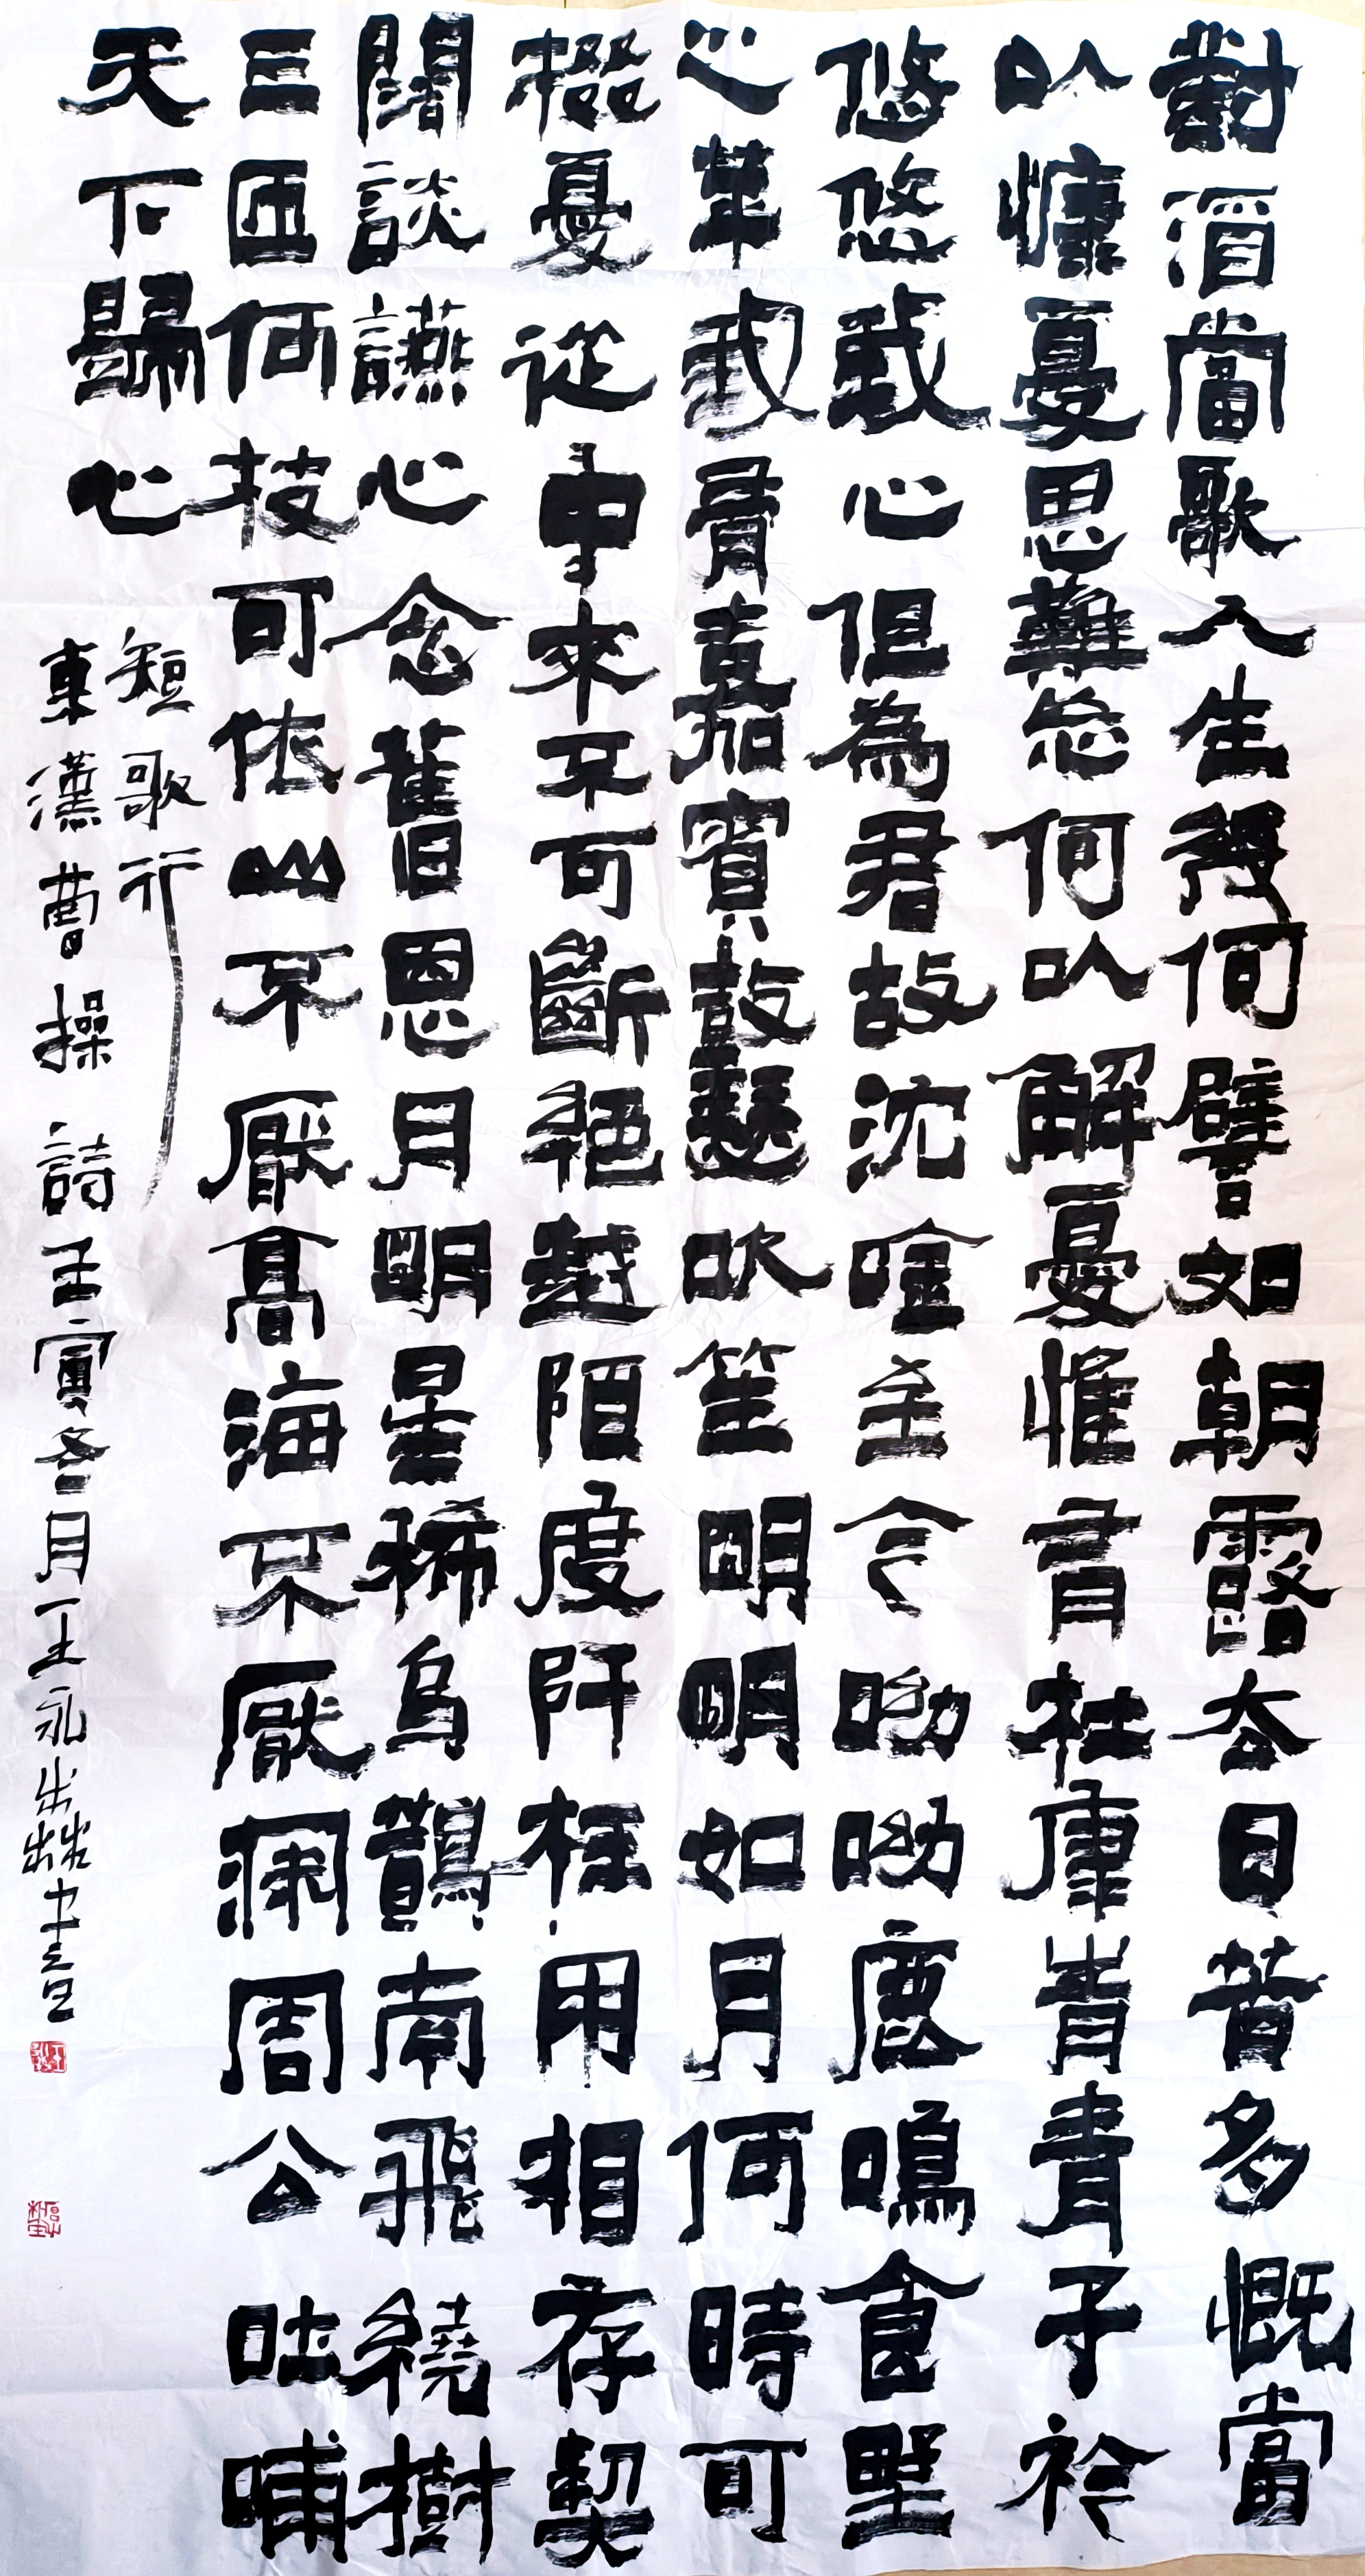 對酒當歌人生幾何譬如朝露去日苦多慨當
以慷憂思難忘何以解憂惟有杜康青青子衿
悠悠我心但為君故沈唫至今呦呦鹿鳴食野
之苹我有嘉賓鼓瑟吹笙明明如月何時可
掇憂從中來不可斷絕越陌度阡枉用相存契
闊談讌心念舊恩月明星稀烏鵲南飛繞樹
三匝何枝可依山不厭高海不厭深周公吐哺
天下歸心
短歌行
東漢曹操詩壬寅冬月王永書